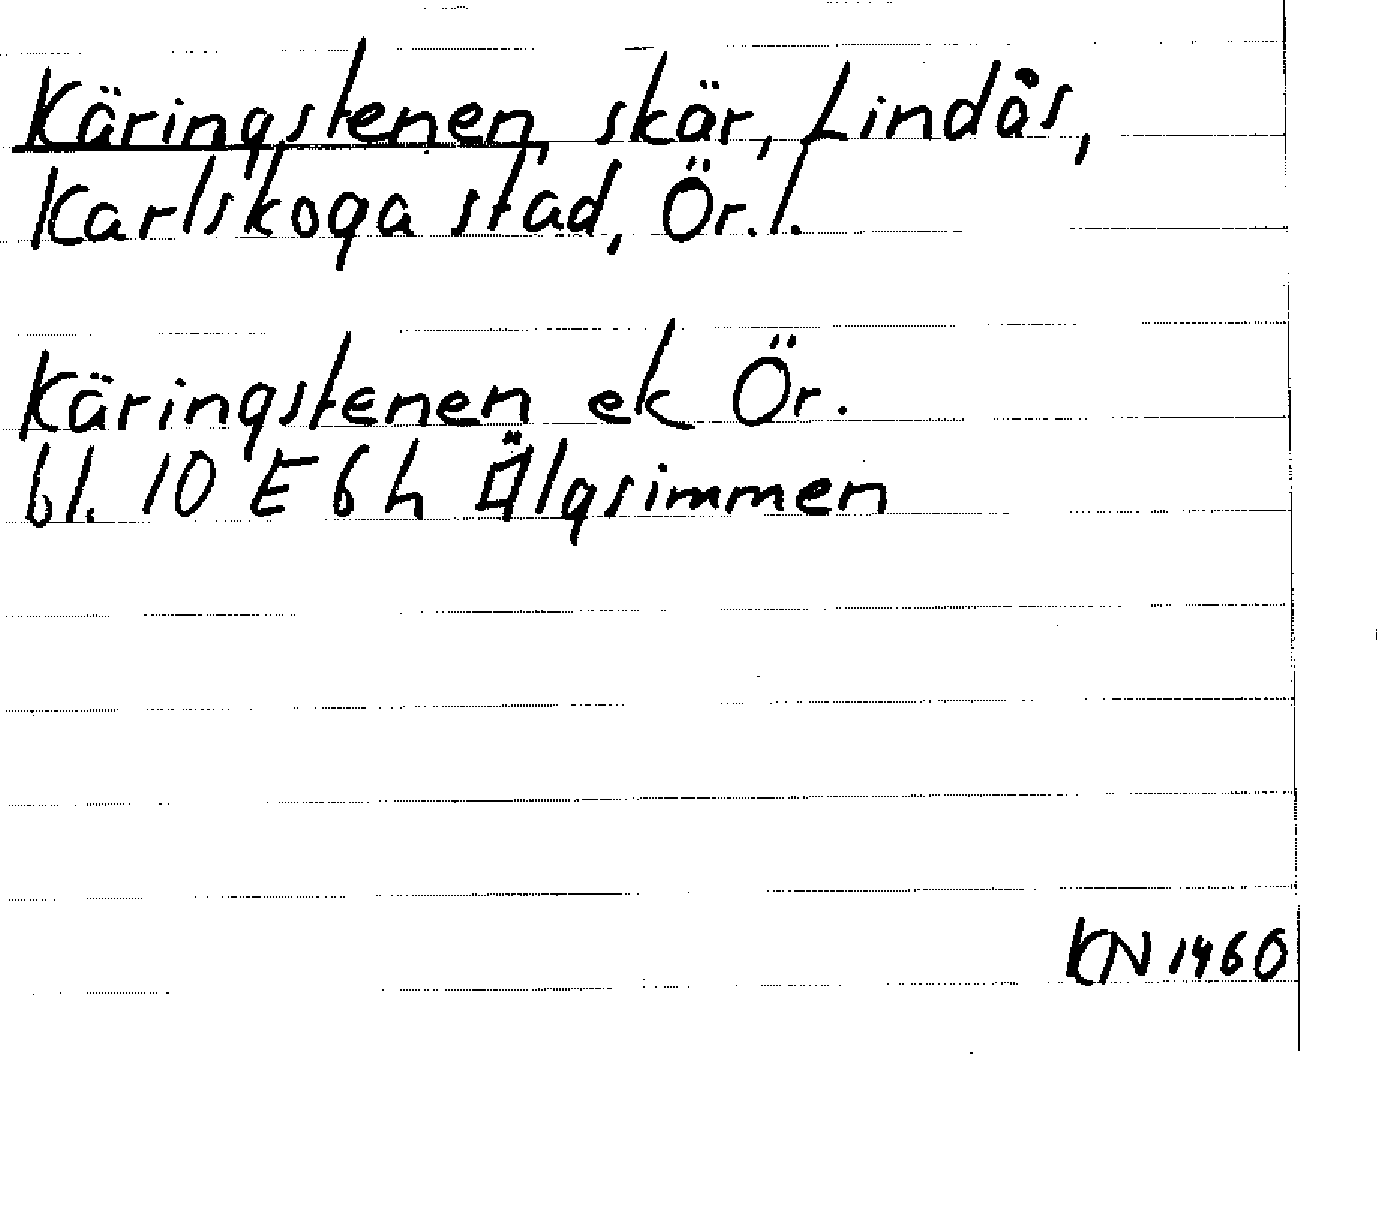 Käringstenen, skär, Lindås,
Karlskoga stad, Ör.l.
Käringstenen ek Ör.
bl. 10 E 6 h Älgsimmen
KN 1460